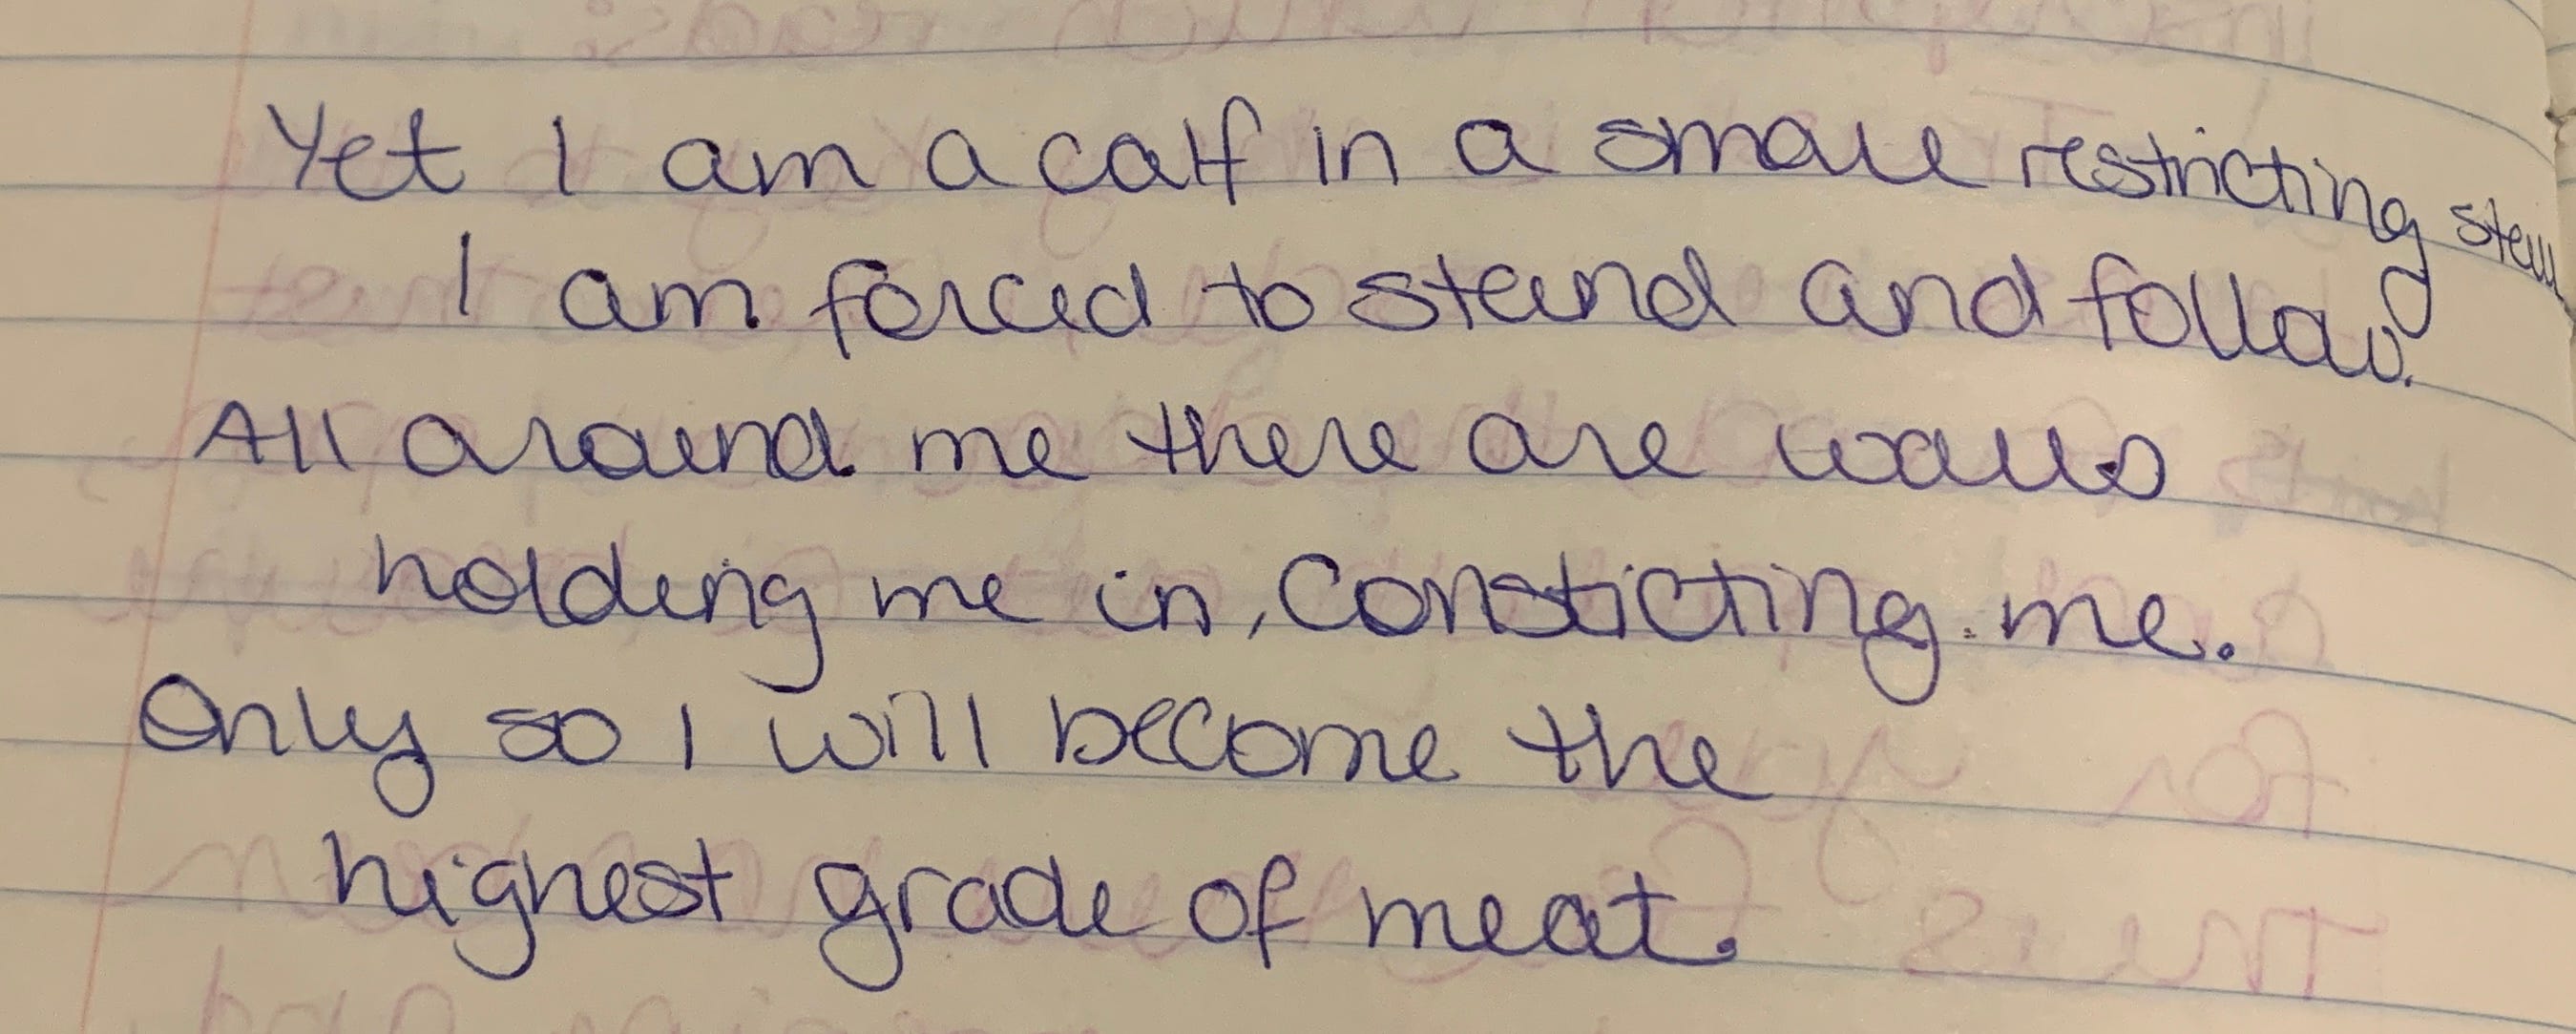 Yet I am a calf in a small restricting stall
I am forced to stand and follow.
All around me there are walls
holding me in, Consticting me.
Only so I will become the
highest grade of meat.